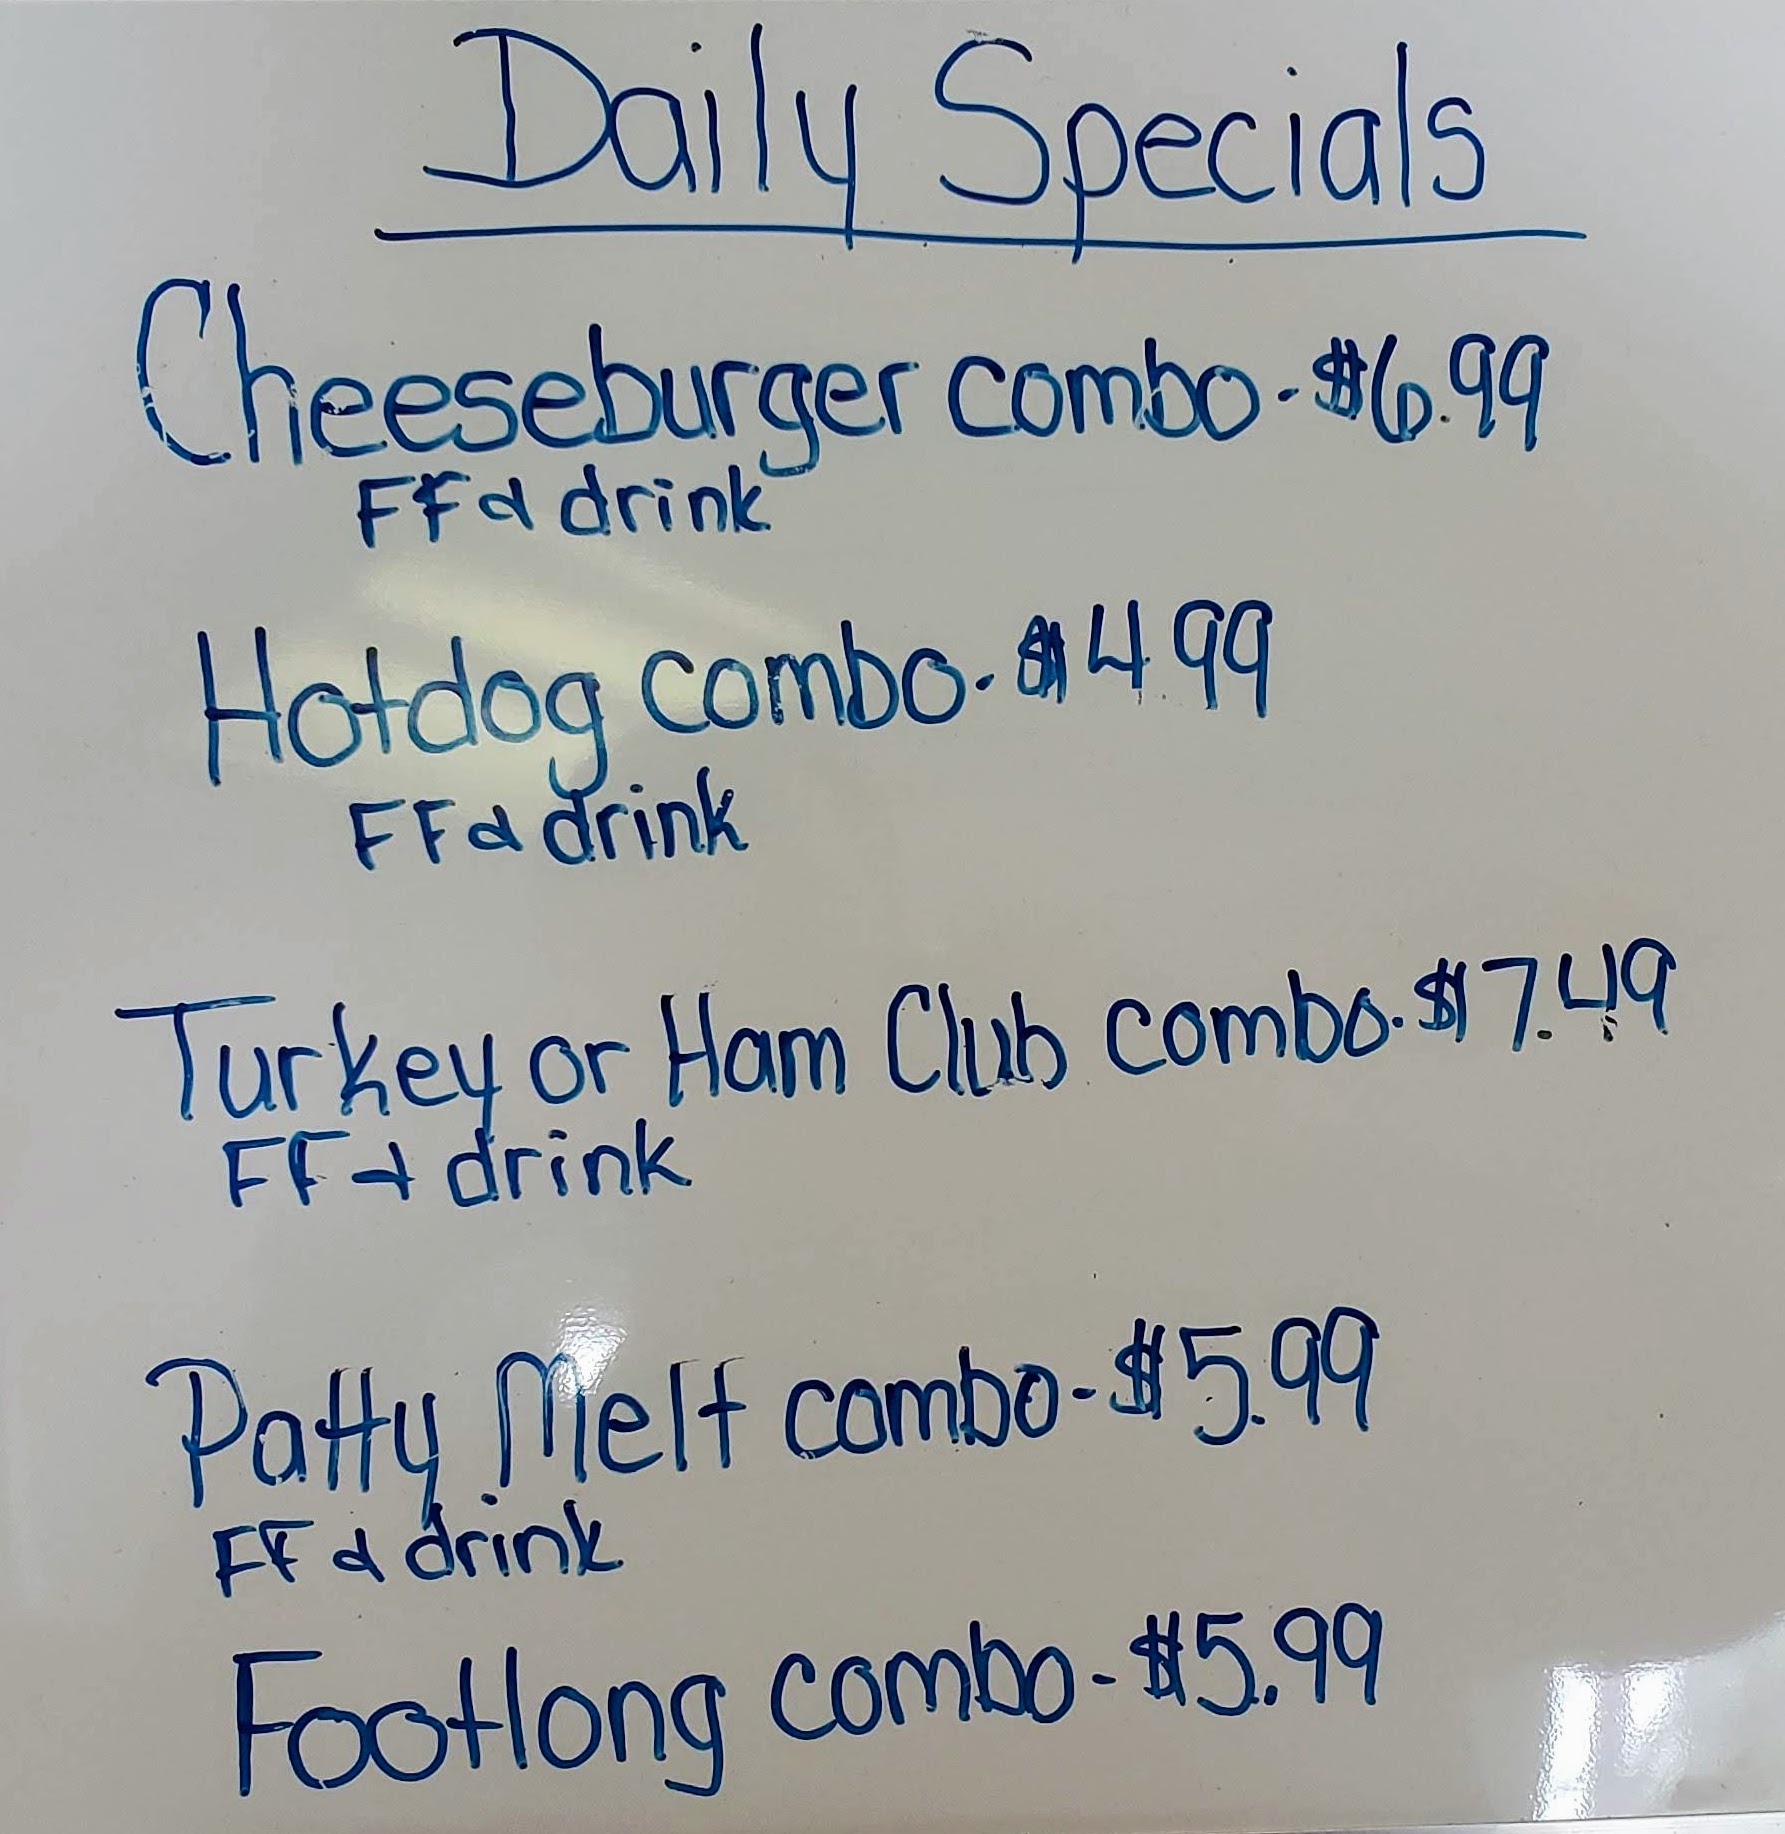 Daily Specials
Cheeseburger combo - $6.99
FF & drink
Hotdog combo - $4.99
FF & drink
Turkey or Ham Club combo - $7.49
FF & drink
Patty Melt combo - $5.99
FF & drink
Footlong combo - $5.99